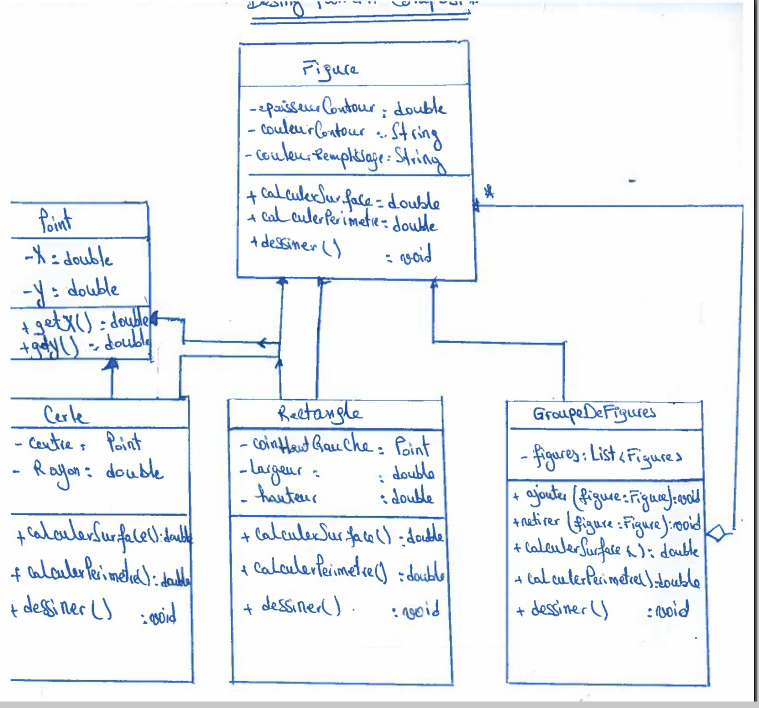 Figure
-epaisseurContour : double
- couleurContour : String
- couleurRemplissage : String
+ calculerSurface = double
+ calculerPerimetre = double
+ dessiner () : void
*
Point
- X : double
- Y : double
+ getX() : double
+ getY() : double
Cerle
- centre : Point
- Rayon : double
+ calculerSurface() : double
+ calculerPerimetre() : double
+ dessiner () : void
Rectangle
- coinHautGauche : Point
- largeur : : double
- hauteur : double
+ calculerSurface() : double
+ calculerPerimetre() : double
+ dessiner () : void
GroupeDeFigures
- figures : List<Figures
+ ajouter (figure : Figure) : void
+ retirer (figure : Figure) : void
+ calculerSurface () : double
+ calculerPerimetre() : double
+ dessiner () : void